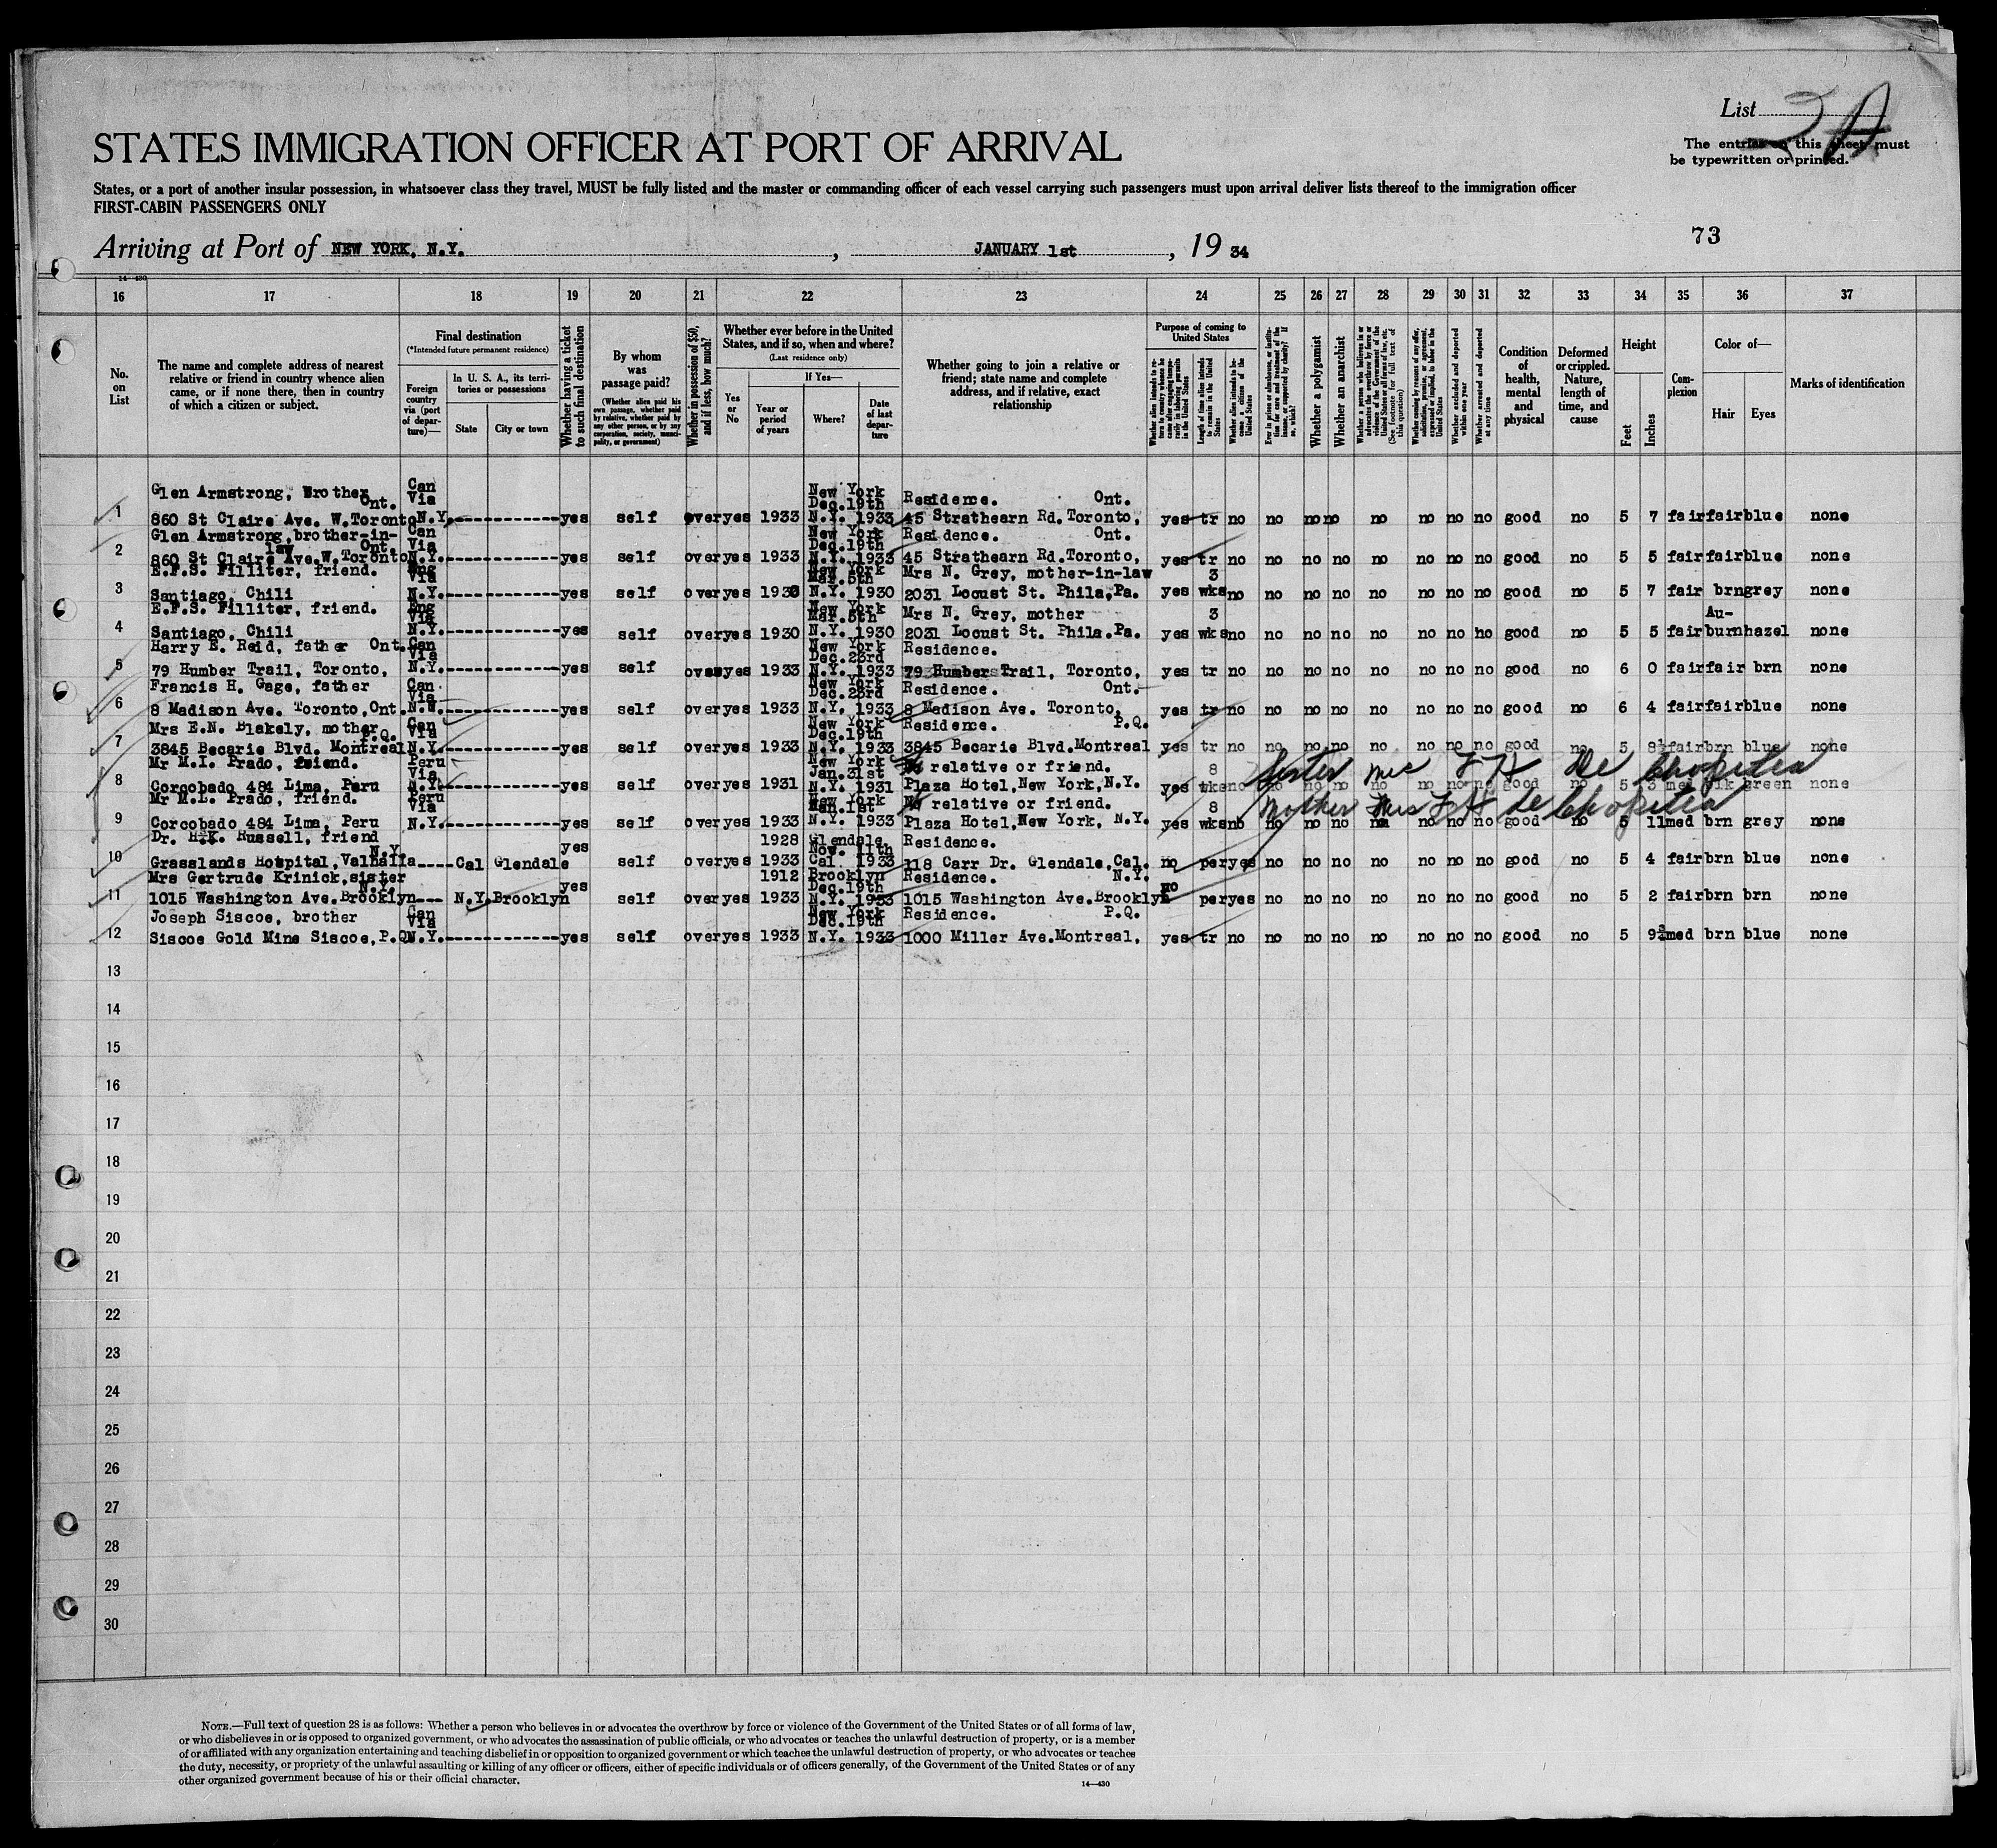 List 2 A
STATES IMMIGRATION OFFICER AT PORT OF ARRIVAL
The entries on this sheet must
be typewritten or printed.
States, or a port of another insular possession, in whatsoever class they travel, MUST be fully listed and the master or commanding officer of each vessel carrying such passengers must upon arrival deliver lists thereof to the immigration officer
FIRST-CABIN PASSENGERS ONLY
Arriving at Port of NEW YORK, N.Y. , JANUARY 1st , 19 34
73
14—430
16 17 18 19 20 21 22 23 24 25 26 27 28 29 30 31 32 33 34 35 36 37
No. on List
The name and complete address of nearest relative or friend in country whence alien came, or if none there, then in country of which a citizen or subject.
Final destination
(*Intended future permanent residence)
Foreign country via (port of departure)—
In U. S. A., its territories or possessions
State
City or town
Whether having a ticket to such final destination
By whom was passage paid?
(Whether alien paid his own passage, whether paid by relative, whether paid by any other person, or by any corporation, society, municipality, or government)
Whether in possession of $50, and if less, how much?
Whether ever before in the United States, and if so, when and where?
(Last residence only)
Yes or No
If Yes—
Year or period of years
Where?
Date of last departure
Whether going to join a relative or friend; state name and complete address, and if relative, exact relationship
Purpose of coming to United States
Length of time alien intends to remain in the United States
Whether alien intends to become a citizen of the United States
Whether a polygamist
Whether an anarchist
Whether excluded and deported within one year
Whether arrested and deported at any time
Condition of health, mental and physical
Deformed or crippled. Nature, length of time, and cause
Height
Feet
Inches
Complexion
Color of—
Hair
Eyes
Marks of identification
Glen Armstrong, Brother Ont. Can Via New York Dec.19th Residence. Ont.
1 860 St Claire Ave. W.Toronto N.Y. yes self over yes 1933 N.Y. 1933 45 Strathearn Rd.Toronto, yes tr no no no no no no no no good no 5 7 fair fair blue none
Glen Armstrong, brother-in-law Ont. Can Via New York Dec.19th Residence. Ont.
2 860 St Claire Ave.W.Toronto N.Y. yes self over yes 1933 N.Y. 1933 45 Strathearn Rd.Toronto, yes tr no no no no no no no no good no 5 5 fair fair blue none
E.F.S. Filliter, friend. Eng Via New York Mar.5th Mrs N. Grey, mother-in-law 3
3 Santiago, Chili N.Y. yes self over yes 1930 N.Y. 1930 2031 Locust St. Phila.Pa. yes wks no no no no no no no no good no 5 7 fair brn grey none
E.F.S. Filliter, friend. Eng Via New York Mar.5th Mrs N. Grey, mother 3 Au-
4 Santiago, Chili N.Y. yes self over yes 1930 N.Y. 1930 2031 Locust St. Phila.Pa. yes wks no no no no no no no no good no 5 5 fair burn hazel none
Harry E. Reid, father Ont. Can Via New York Dec.23rd Residence.
5 79 Humber Trail, Toronto, N.Y. yes self over yes 1933 N.Y. 1933 79 Humber Trail, Toronto, yes tr no no no no no no no no good no 6 0 fair fair brn none
Francis H. Gage, father Can Via New York Dec.23rd Residence. Ont.
6 8 Madison Ave. Toronto, Ont. N.Y. yes self over yes 1933 N.Y. 1933 8 Madison Ave. Toronto, yes tr no no no no no no no no good no 6 4 fair fair blue none
Mrs E.N. Blakely, mother P.Q. Can Via New York Dec.19th Residence. P.Q.
7 3845 Becarie Blvd. Montreal N.Y. yes self over yes 1933 N.Y. 1933 3845 Becarie Blvd.Montreal yes tr no no no no no no no no good no 5 8½ fair brn blue none
Mr M.I. Prado, friend. Peru Via New York Jan.31st No relative or friend. 8 Sister Mrs F H De Chopitea
8 Corcobado 484 Lima, Peru N.Y. yes self over yes 1931 N.Y. 1931 Plaza Hotel, New York, N.Y. yes wks no no no no no no no no good no 5 3 med blk green none
Mr M.L. Prado, friend. Peru Via New York Jan.1st No relative or friend. 8 Mother Mrs F H de Chopitea
9 Corcobado 484 Lima, Peru N.Y. yes self over yes 1933 N.Y. 1933 Plaza Hotel, New York, N.Y. yes wks no no no no no no no no good no 5 11 med brn grey none
Dr. H.K. Russell, friend N.Y. yes 1928 Glendale Nov. 11th Residence.
10 Grasslands Hospital, Valhalla Cal Glendale self over yes 1933 Cal. 1933 118 Carr Dr. Glendale, Cal. no per yes no no no no no no no good no 5 4 fair brn blue none
Mrs Gertrude Krinick, sister N.Y. yes 1912 Brooklyn Dec.19th Residence. N.Y. no
11 1015 Washington Ave. Brooklyn N.Y. Brooklyn self over yes 1933 N.Y. 1933 1015 Washington Ave.Brooklyn per yes no no no no no no no good no 5 2 fair brn brn none
Joseph Siscoe, brother Can Via New York Dec.19th Residence. P.Q.
12 Siscoe Gold Mine Siscoe, P.Q. N.Y. yes self over yes 1933 N.Y. 1933 1000 Miller Ave.Montreal, yes tr no no no no no no no no good no 5 9¾ med brn blue none
13
14
15
16
17
18
19
20
21
22
23
24
25
26
27
28
29
30
NOTE.—Full text of question 28 is as follows: Whether a person who believes in or advocates the overthrow by force or violence of the Government of the United States or of all forms of law,
or who disbelieves in or is opposed to organized government, or who advocates the assassination of public officials, or who advocates or teaches the unlawful destruction of property, or is a member
of or affiliated with any organization entertaining and teaching disbelief in or opposition to organized government or which teaches the unlawful destruction of property, or who advocates or teaches
the duty, necessity, or propriety of the unlawful assaulting or killing of any officer or officers, either of specific individuals or of officers generally, of the Government of the United States or of any
other organized government because of his or their official character.
14—430